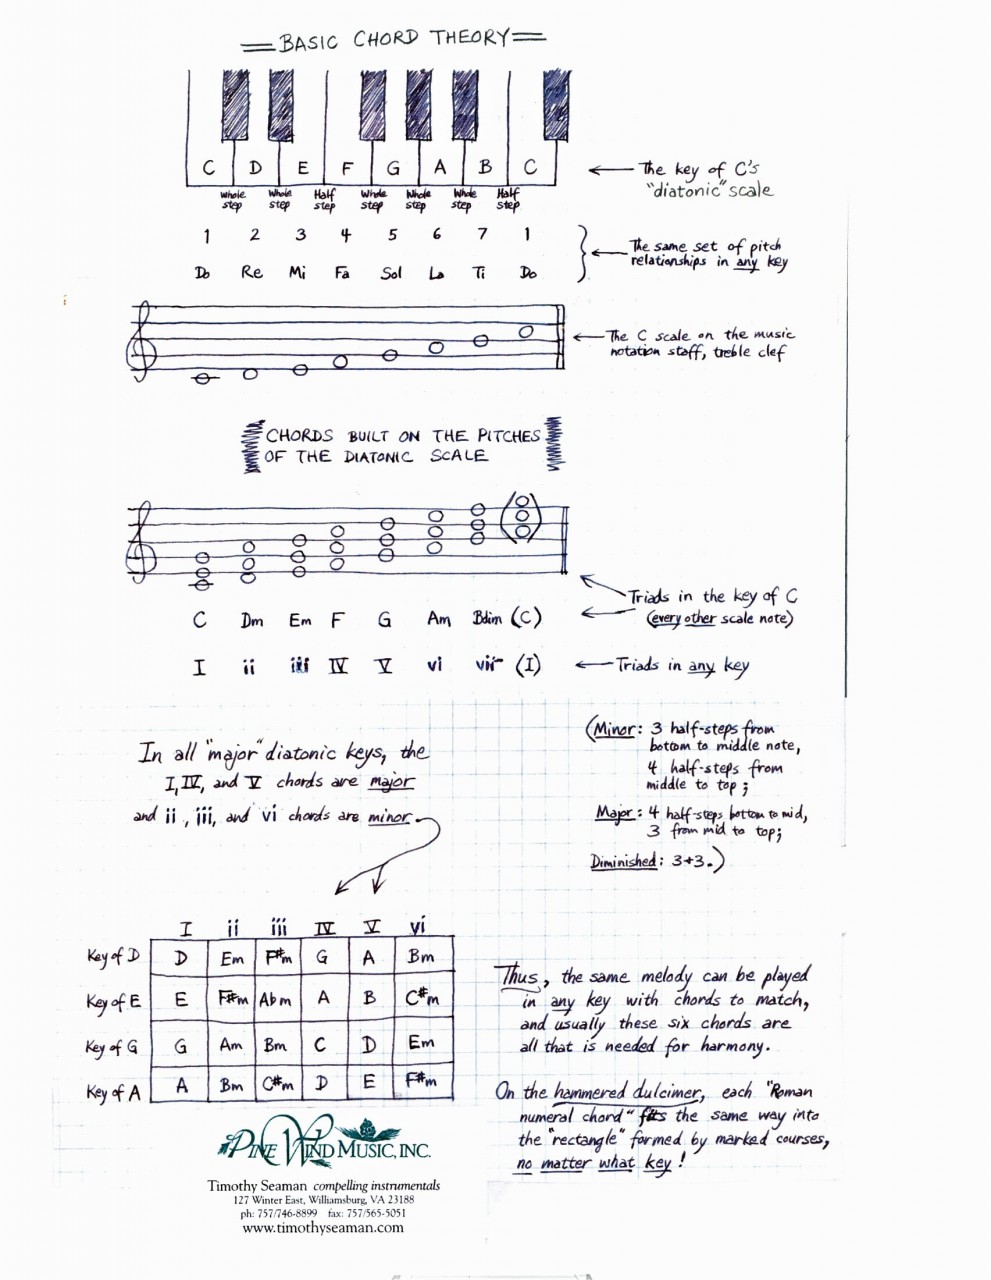 BASIC CHORD THEORY
C D E F G A B C
Whole step Whole step Half step Whole step Whole step Whole step Half step
← The key of C's
"diatonic" scale
1 2 3 4 5 6 7 1
Do Re Mi Fa Sol La Ti Do
← The same set of pitch
relationships in any key
← The C scale on the music
notation staff, treble clef
CHORDS BUILT ON THE PITCHES
OF THE DIATONIC SCALE
Triads in the key of C
(every other scale note)
C Dm Em F G Am Bdim (C)
I ii iii IV V vi vii- (I)
← Triads in any key
In all "major" diatonic keys, the
I, IV, and V chords are major
and ii, iii, and vi chords are minor
(Minor: 3 half-steps from
bottom to middle note,
4 half-steps from
middle to top;
Major: 4 half-steps bottom to mid,
3 from mid to top;
Diminished: 3+3.)
I ii iii IV V vi
Key of D D Em F#m G A Bm
Key of E E F#m Abm A B C#m
Key of G G Am Bm C D Em
Key of A A Bm C#m D E F#m
Thus, the same melody can be played
in any key with chords to match,
and usually these six chords are
all that is needed for harmony.
On the hammered dulcimer, each "Roman
numeral chord" fits the same way into
the "rectangle" formed by marked courses,
no matter what key!
PINE WIND MUSIC, INC.
Timothy Seaman compelling instrumentals
127 Winter East, Williamsburg, VA 23188
ph: 757/746-8899 fax: 757/565-5051
www.timothyseaman.com